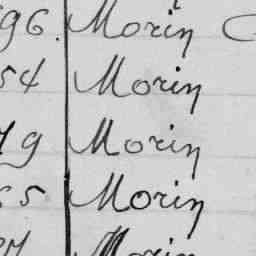 96. Morin
54 Morin
79 Morin
65 Morin
Morin